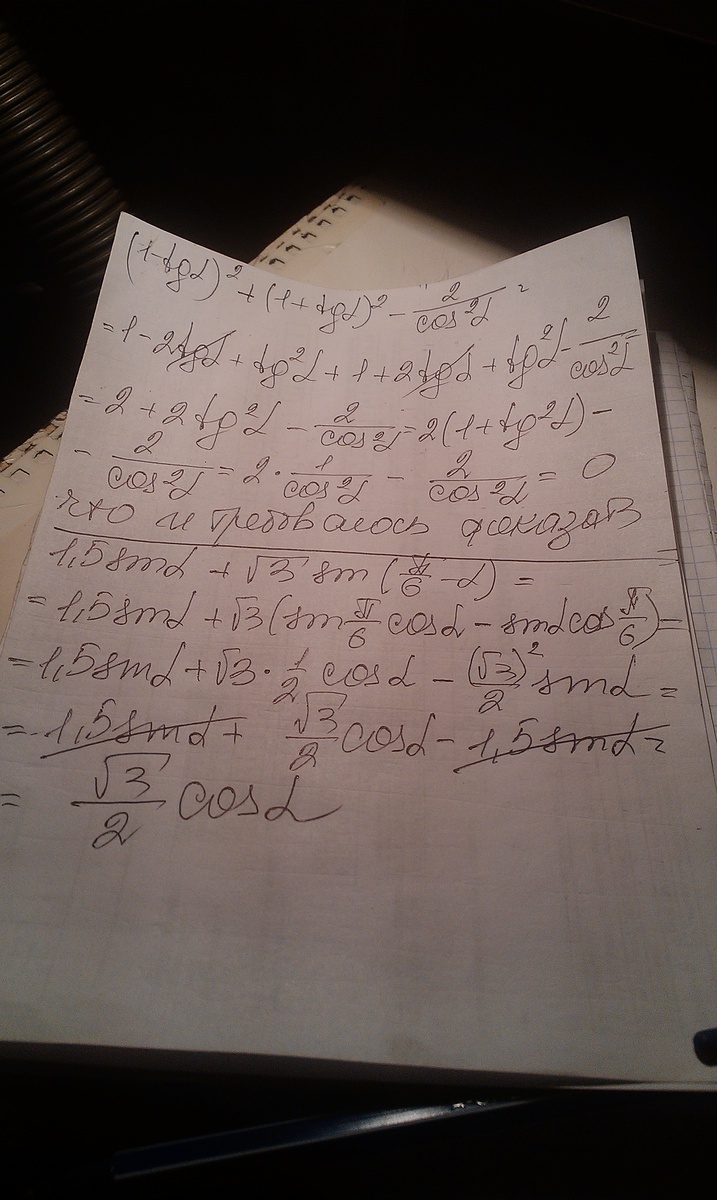 (1-tgα)² + (1+tgα)² - 2/cos²α =
= 1 - 2tgα + tg²α + 1 + 2tgα + tg²α - 2/cos²α
= 2 + 2tg²α - 2/cos²α = 2(1+tg²α) -
- 2/cos²α = 2 · 1/cos²α - 2/cos²α = 0
что и требовалось доказать
1,5 sinα + √3 sin(π/6 - α) =
= 1,5 sinα + √3(sin π/6 cosα - sinα cos π/6) =
= 1,5 sinα + √3 · 1/2 cosα - (√3)²/2 sinα =
= 1,5 sinα + √3/2 cosα - 1,5 sinα =
= √3/2 cosα